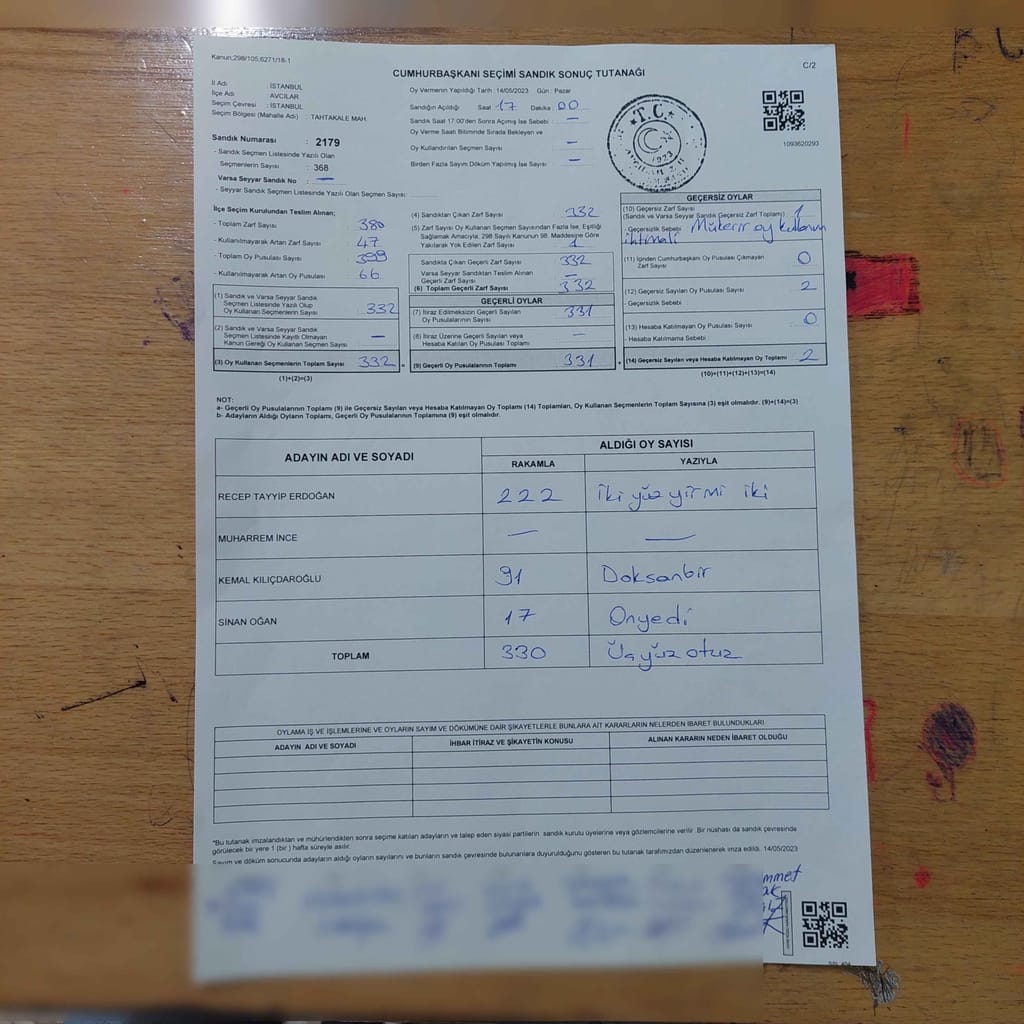 Kanun;298/105;6271/18-1
C/2
CUMHURBAŞKANI SEÇİMİ SANDIK SONUÇ TUTANAĞI
İl Adı : İSTANBUL
İlçe Adı : AVCILAR
Seçim Çevresi : İSTANBUL
Seçim Bölgesi (Mahalle Adı) : TAHTAKALE MAH.
Sandık Numarası : 2179
- Sandık Seçmen Listesinde Yazılı Olan
Seçmenlerin Sayısı : 368
Varsa Seyyar Sandık No : —
- Seyyar Sandık Seçmen Listesinde Yazılı Olan Seçmen Sayısı
Oy Vermenin Yapıldığı Tarih :14/05/2023 Gün : Pazar
Sandığın Açıldığı Saat 17 Dakika 00
Sandık Saat 17:00'den Sonra Açımış İse Sebebi —
Oy Verme Saati Bitiminde Sırada Bekleyen ve
Oy Kullandırılan Seçmen Sayısı —
Birden Fazla Sayım Döküm Yapılmış İse Sayısı —
T.C.
1923
1093620293
İlçe Seçim Kurulundan Teslim Alınan;
- Toplam Zarf Sayısı 380
- Kullanılmayarak Artan Zarf Sayısı 47
- Toplam Oy Pusulası Sayısı 399
- Kullanılmayarak Artan Oy Pusulası 66
(1) Sandık ve Varsa Seyyar Sandık
Seçmen Listesinde Yazılı Olup
Oy Kullanan Seçmenlerin Sayısı 332
(2) Sandık ve Varsa Seyyar Sandık
Seçmen Listesinde Kayıtlı Olmayan
Kanun Gereği Oy Kullanan Seçmen Sayısı —
(3) Oy Kullanan Seçmenlerin Toplam Sayısı 332 =
(1)+(2)=(3)
(4) Sandıktan Çıkan Zarf Sayısı 332
(5) Zarf Sayısı Oy Kullanan Seçmen Sayısından Fazla İse, Eşitliği
Sağlamak Amacıyla; 298 Sayılı Kanunun 98. Maddesine Göre
Yakılarak Yok Edilen Zarf Sayısı 1
Sandıkta Çıkan Geçerli Zarf Sayısı 332
Varsa Seyyar Sandıktan Teslim Alınan
Geçerli Zarf Sayısı —
(6) Toplam Geçerli Zarf Sayısı 332
GEÇERLİ OYLAR
(7) İtiraz Edilmeksizin Geçerli Sayılan
Oy Pusulalarının Sayısı 331
(8) İtiraz Üzerine Geçerli Sayılan veya
Hesaba Katılan Oy Pusulası Toplamı —
(9) Geçerli Oy Pusulalarının Toplamı 331 +
GEÇERSİZ OYLAR
(10) Geçersiz Zarf Sayısı
(Sandık ve Varsa Seyyar Sandık Geçersiz Zarf Toplamı) 1
- Geçersizlik Sebebi Mükerir oy kullanım
ihtimali
(11) İçinden Cumhurbaşkanı Oy Pusulası Çıkmayan
Zarf Sayısı 0
(12) Geçersiz Sayılan Oy Pusulası Sayısı 2
- Geçersizlik Sebebi
(13) Hesaba Katılmayan Oy Pusulası Sayısı 0
- Hesaba Katılmama Sebebi
(14) Geçersiz Sayılan veya Hesaba Katılmayan Oy Toplamı 2
(10)+(11)+(12)+(13)=(14)
NOT:
a- Geçerli Oy Pusulalarının Toplamı (9) ile Geçersiz Sayılan veya Hesaba Katılmayan Oy Toplamı (14) Toplamları, Oy Kullanan Seçmenlerin Toplam Sayısına (3) eşit olmalıdır. (9)+(14)=(3)
b- Adayların Aldığı Oyların Toplamı, Geçerli Oy Pusulalarının Toplamına (9) eşit olmalıdır.
ADAYIN ADI VE SOYADI
ALDIĞI OY SAYISI
RAKAMLA YAZIYLA
RECEP TAYYİP ERDOĞAN 222 İki yüz yirmi iki
MUHARREM İNCE — —
KEMAL KILIÇDAROĞLU 91 Doksanbir
SİNAN OĞAN 17 Onyedi
TOPLAM 330 Üçyüz otuz
OYLAMA İŞ VE İŞLEMLERİNE VE OYLARIN SAYIM VE DÖKÜMÜNE DAİR ŞİKAYETLERLE BUNLARA AİT KARARLARIN NELERDEN İBARET BULUNDUKLARI
ADAYIN ADI VE SOYADI İHBAR İTİRAZ VE ŞİKAYETİN KONUSU ALINAN KARARIN NEDEN İBARET OLDUĞU
*Bu tutanak imzalandıktan ve mühürlendikten sonra seçime katılan adayların ve talep eden siyasi partilerin sandık kurulu üyelerine veya gözlemcilerine verilir. Bir nüshası da sandık çevresinde
görülecek bir yere 1 (bir ) hafta süreyle asılır.
Sayım ve döküm sonucunda adayların aldığı oyların sayılarını ve bunların sandık çevresinde bulunanlara duyurulduğunu gösteren bu tutanak tarafımızdan düzenlenerek imza edildi. 14/05/2023
mmet